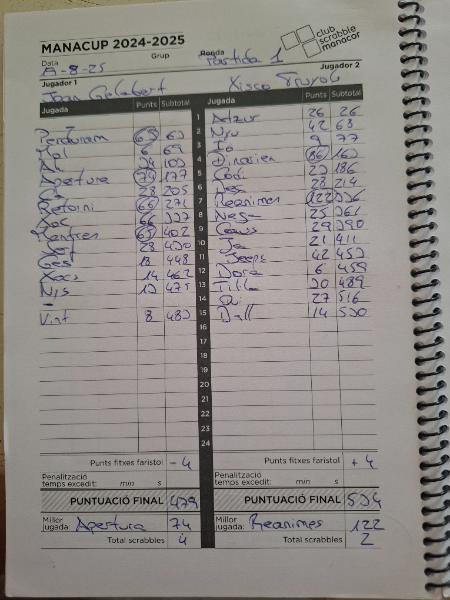 MANACUP 2024-2025
club scrabble manacor
Data Grup Ronda
Partida 1
Jugador 1 Jugador 2
Joan Gelabert
Jugada Punts Subtotal Jugada Punts Subtotal
1 Adzur 26 26
Perduram 63 63 2 Niu 42 68
Mal 6 69 3 Io 9 77
4 Dinarien 86 163
Apertura 74 177 5 186
28 205 6 28 214
Retorni 66 271 7 Reanimes 122 336
Xoc 66 337 8 25 361
402 9 29 390
28 430 10 Ja 21 411
Ges 18 448 11 Beeps 42 453
Xacs 14 462 12 Dora 6 459
Nis 13 475 13 Till 30 489
- 14 27 516
Vint 8 483 15 Dall 14 530
16
17
18
19
20
21
22
23
24
Punts fitxes faristol - 4 Punts fitxes faristol + 4
Penalització temps excedit: min s Penalització temps excedit: min s
PUNTUACIÓ FINAL 479 PUNTUACIÓ FINAL 534
Millor jugada: Apertura 74 Millor jugada: Reanimes 122
Total scrabbles 4 Total scrabbles 2